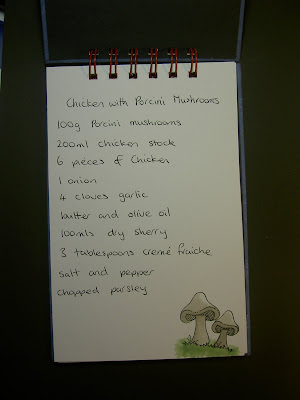 Chicken with Porcini Mushrooms
100g Porcini mushrooms
200ml chicken stock
6 pieces of Chicken
1 onion
4 cloves garlic
butter and olive oil
100mls dry sherry
3 tablespoons cremé fraiche
salt and pepper
chopped parsley